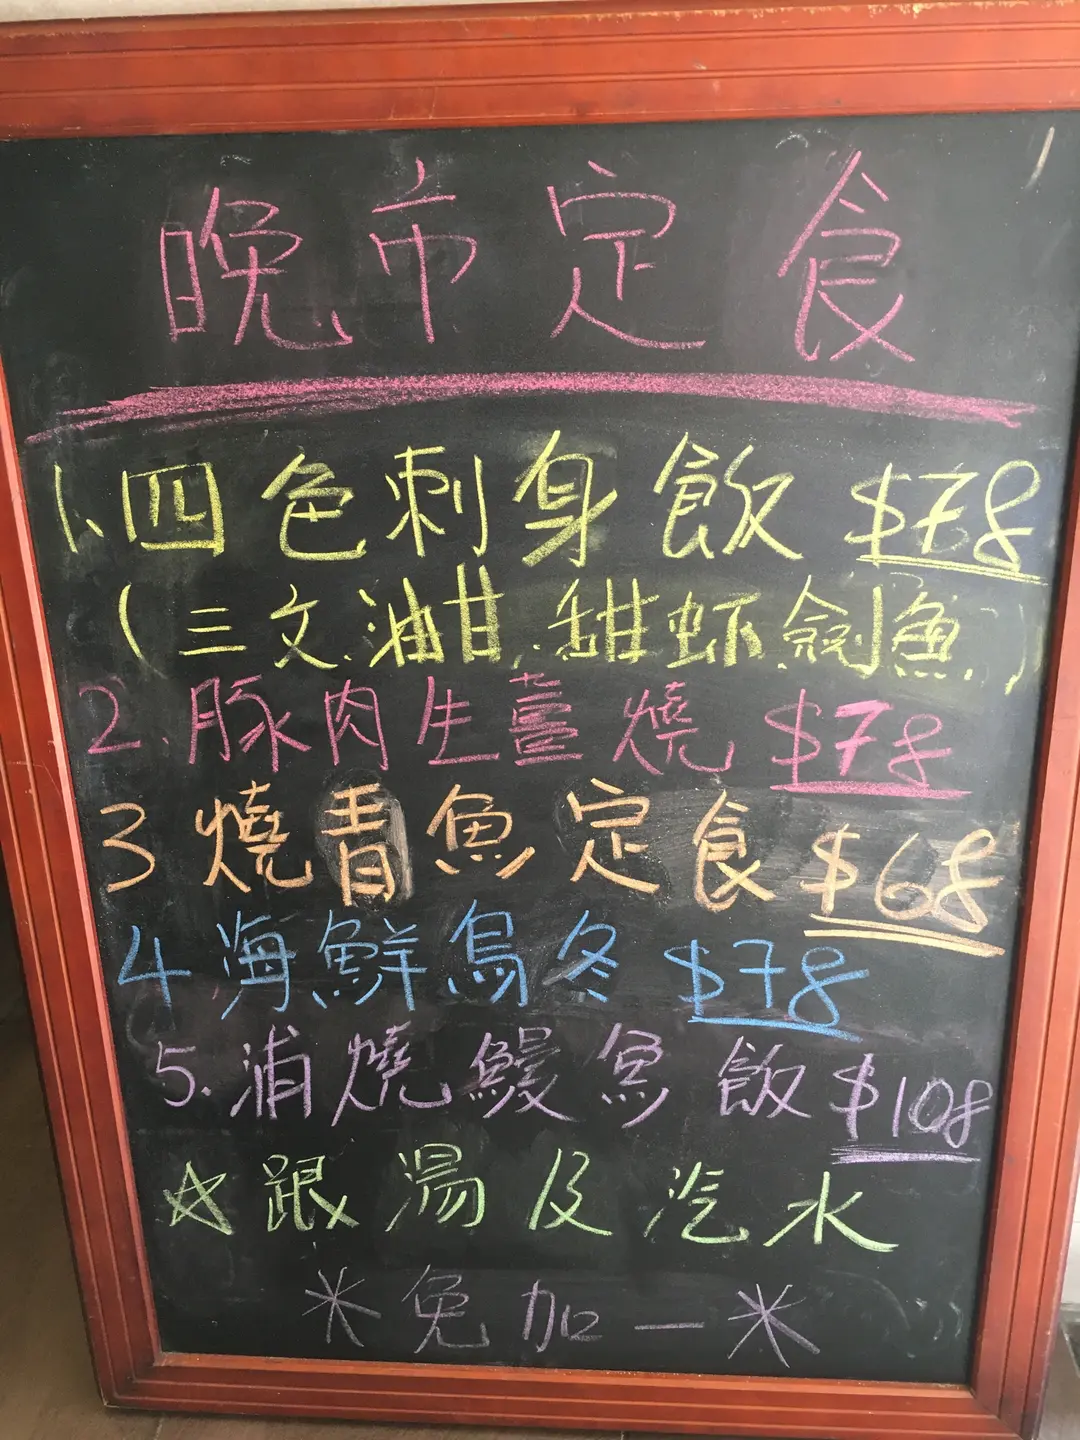 晚市定食
1、四色刺身飯 $78
(三文.油甘.甜虾.劍魚.)
2.豚肉生薑燒 $78
3 燒青魚定食 $68
4 海鮮烏冬 $78
5.浦燒鰻魚飯 $108
☆跟湯及汽水
*免加一*